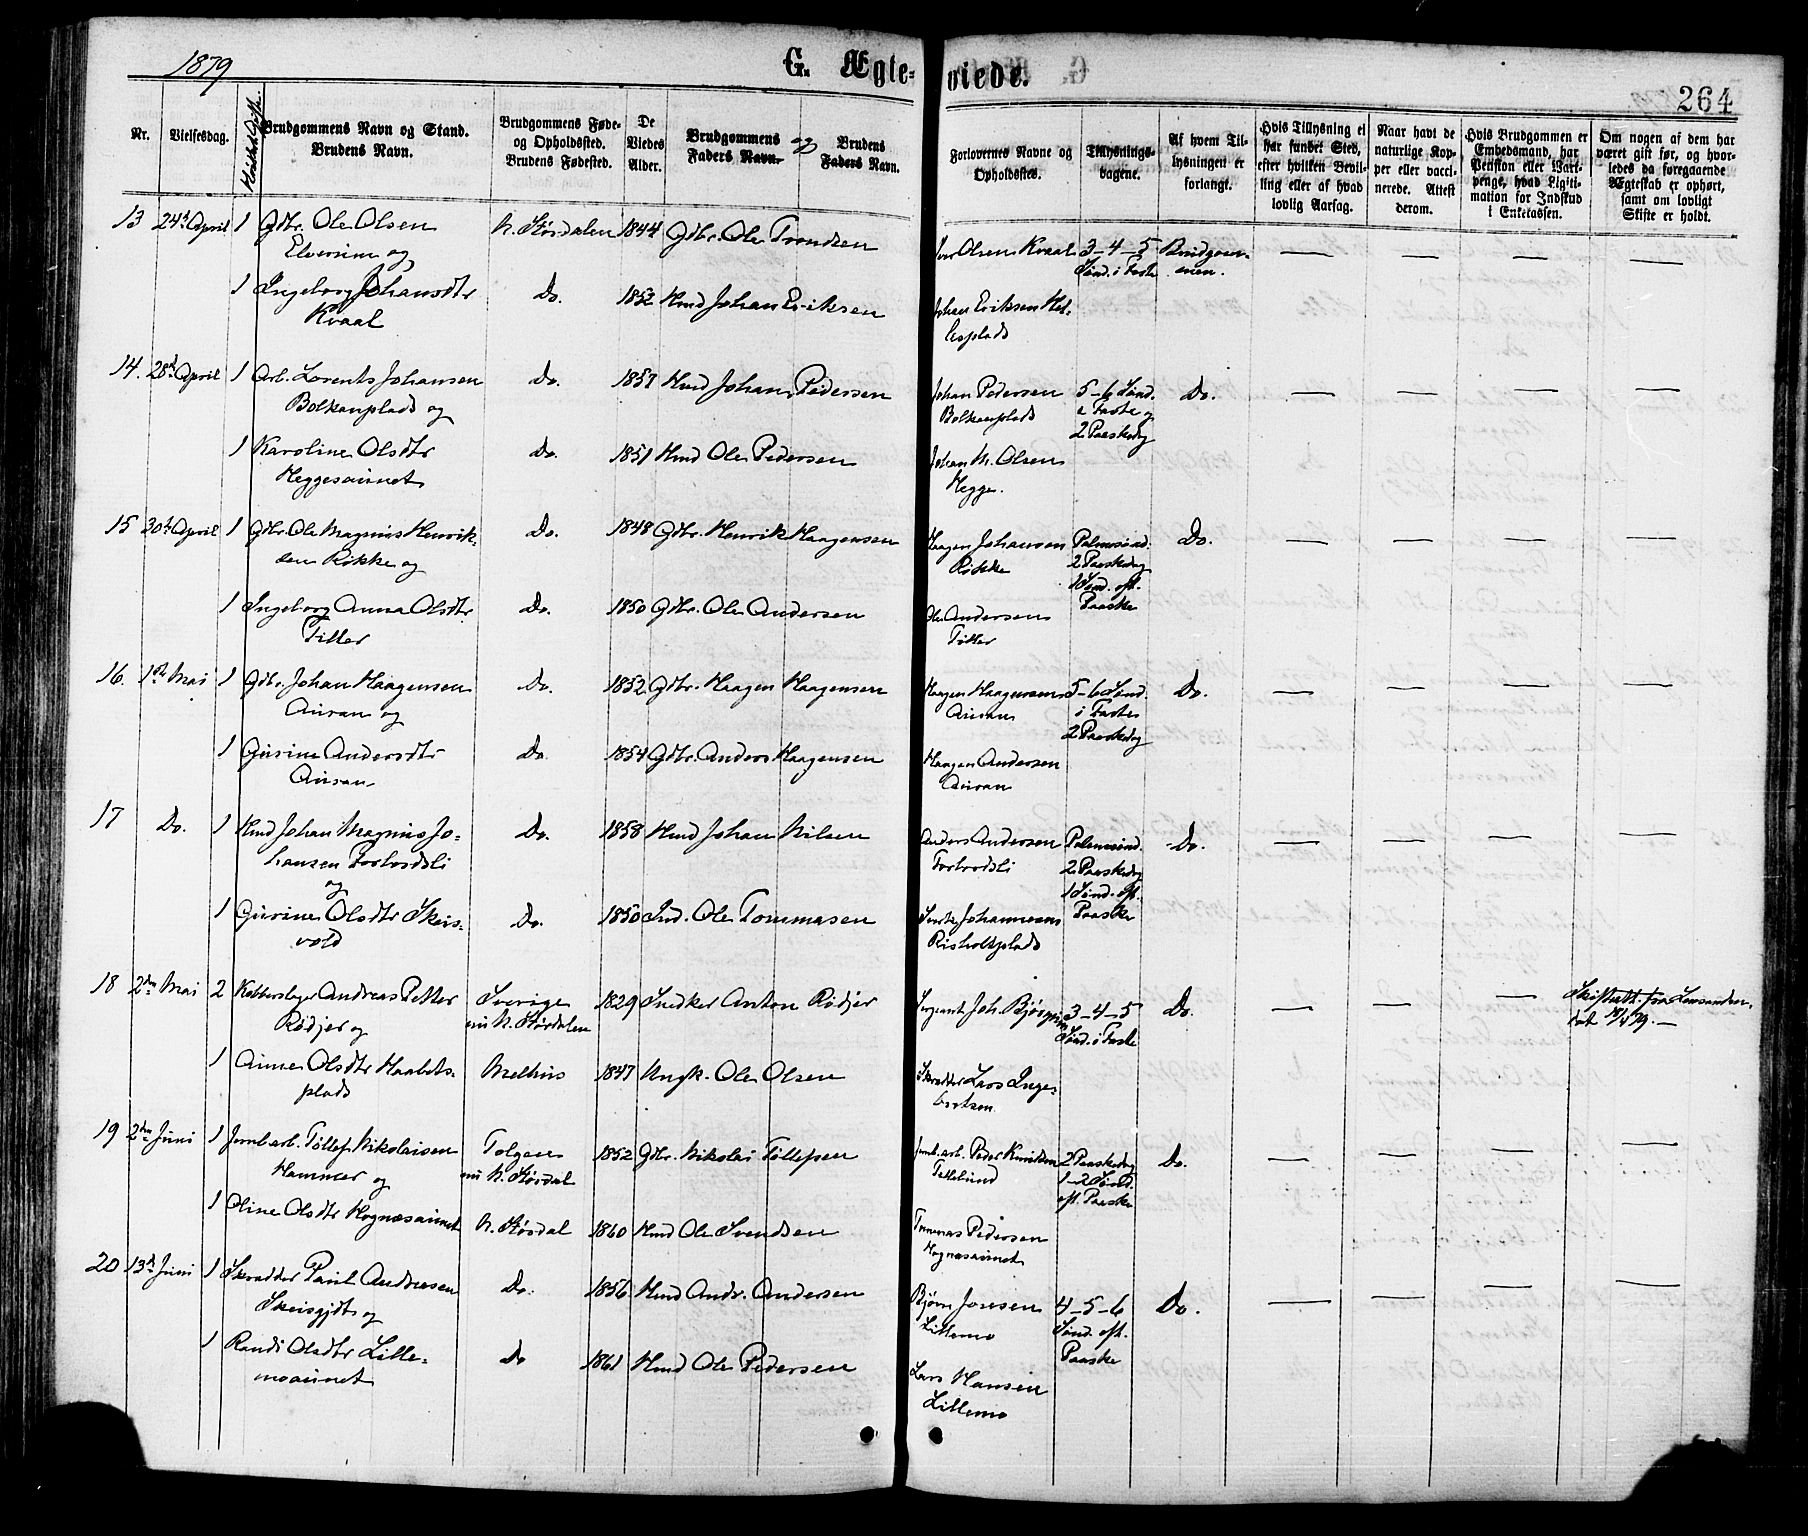 1879
G. Ægte-viede.
264
Nr.
Vielsesdag.
Brudgommens Navn og Stand.
Brudens Navn.
Brudgommens Føde-
og Opholdssted.
Brudens Fødested.
De
Viedes
Alder.
Brudgommens
Faders Navn.
og
Brudens
Faders Navn.
Forlovernes Navne og
Opholdssted.
Tillysnings-
dagene.
Af hvem Til-
lysningen er
forlangt.
Hvis Tillysning ei
har fundet Sted,
efter hvilken Bevil-
ling eller af hvad
lovlig Aarsag.
Naar havt de
naturlige Kop-
per eller vacci-
nerede. Attest
derom.
Hvis Brudgommen er
Embedsmand, har
Pension eller Vart-
penge, hvad Ligiti-
mation for Indskud
i Enkekassen.
Om nogen af dem har
været gift før, og hvor-
ledes da foregaaende
Ægteskab er ophørt,
samt om lovligt
Skifte er holdt.
13 24de April 1 Gdbr. Ole Olsen N. Størdalen 1844 Gdbr. Ole Trondsen Iver Olsen Kvaal 3-4-5 Brudgom-
Elverum og Sønd. i Faste men.
1 Ingeborg Johansdtr Do. 1852 Hmd Johan Eriksen Johan Eriksen
Kvaal
14. 28de April 1 Arb. Lorents Johansen Do. 1857 Hmd Johan Pedersen Johan Pedersen 5-6 Sønd. Do.
Bolkanplads og Bolkanplads i Faste og
2 Paaskedag
1 Karoline Olsdtr Do. 1851 Hmd Ole Pedersen Johan M. Olsen
Heggesaunet Hegge.
15 30te April 1 Gdbr. Ole Magnus Henrik- Do. 1848 Gdbr. Henrik Haagensen Haagen Johansen Palmesønd. Do.
sen Røkke og Røkke 2 Paaskedag
1 Sønd. eft.
Paaske
1 Ingeborg Anna Olsdtr Do. 1850 Gdbr. Ole Andersen Ole Andersen
Tiller Tiller
16. 1ste Mai 1 Gdbr. Johan Haagensen Do. 1852 Gdbr. Haagen Haagensen Haagen Haagensen 5-6 Sønd. Do.
Auran og Auran i Faste
2 Paaskedag
1 Gurine Andersdtr Do. 1854 Gdbr. Anders Haagensen Haagen Andersen
Auran Auran
17 Do. 1 Hmd Johan Magnus Jo- Do. 1858 Hmd Johan Nilsen Anders Andersen Palmesønd. Do.
hansen Forbordsli Forbordsli 2 Paaskedag
og 1 Sønd. eft.
1 Gurine Olsdtr Skeis- Do. 1850 Ind. Ole Tommasen Johannesen Paaske
vold Risholtplads
18 2den Mai 2 Kobberslager Andreas Petter Sverige 1829 Snedker Anton Rødjer Sergeant Joh. Bjørgum 3-4-5 Do.
Rødjer og nu N. Størdalen Sønd. i Faste
Skifteatt. fra Lensmanden
1 Anne Olsdtr Haabets- Melhus 1847 Ungk. Ole Olsen Skrædder Lars Inge-
plads brtsen
19 2den Juni 1 Jernb.arb. Tollef Nikolaisen Tolgen 1852 Gdbr. Nikolai Tollefsen Jernb.arb. Peder Knudsen 2 Paaskedag Do.
Hammer og nu N. Størdal 1-2 Sønd.
eft. Paaske
1 Oline Olsdtr Hognesaunet N. Størdal 1860 Hmd Ole Svendsen Tommas Pedersen
Hognesaunet
20 13de Juni 1 Skrædder Paul Andresen Do. 1856 Hmd Andr. Andersen Bjørn Jonsen 4-5-6 Do.
og Lillemo Sønd. eft.
Paaske
1 Randi Olsdtr Lille- Do 1861 Hmd Ole Pedersen Lars Hansen
moaunet Lillemo